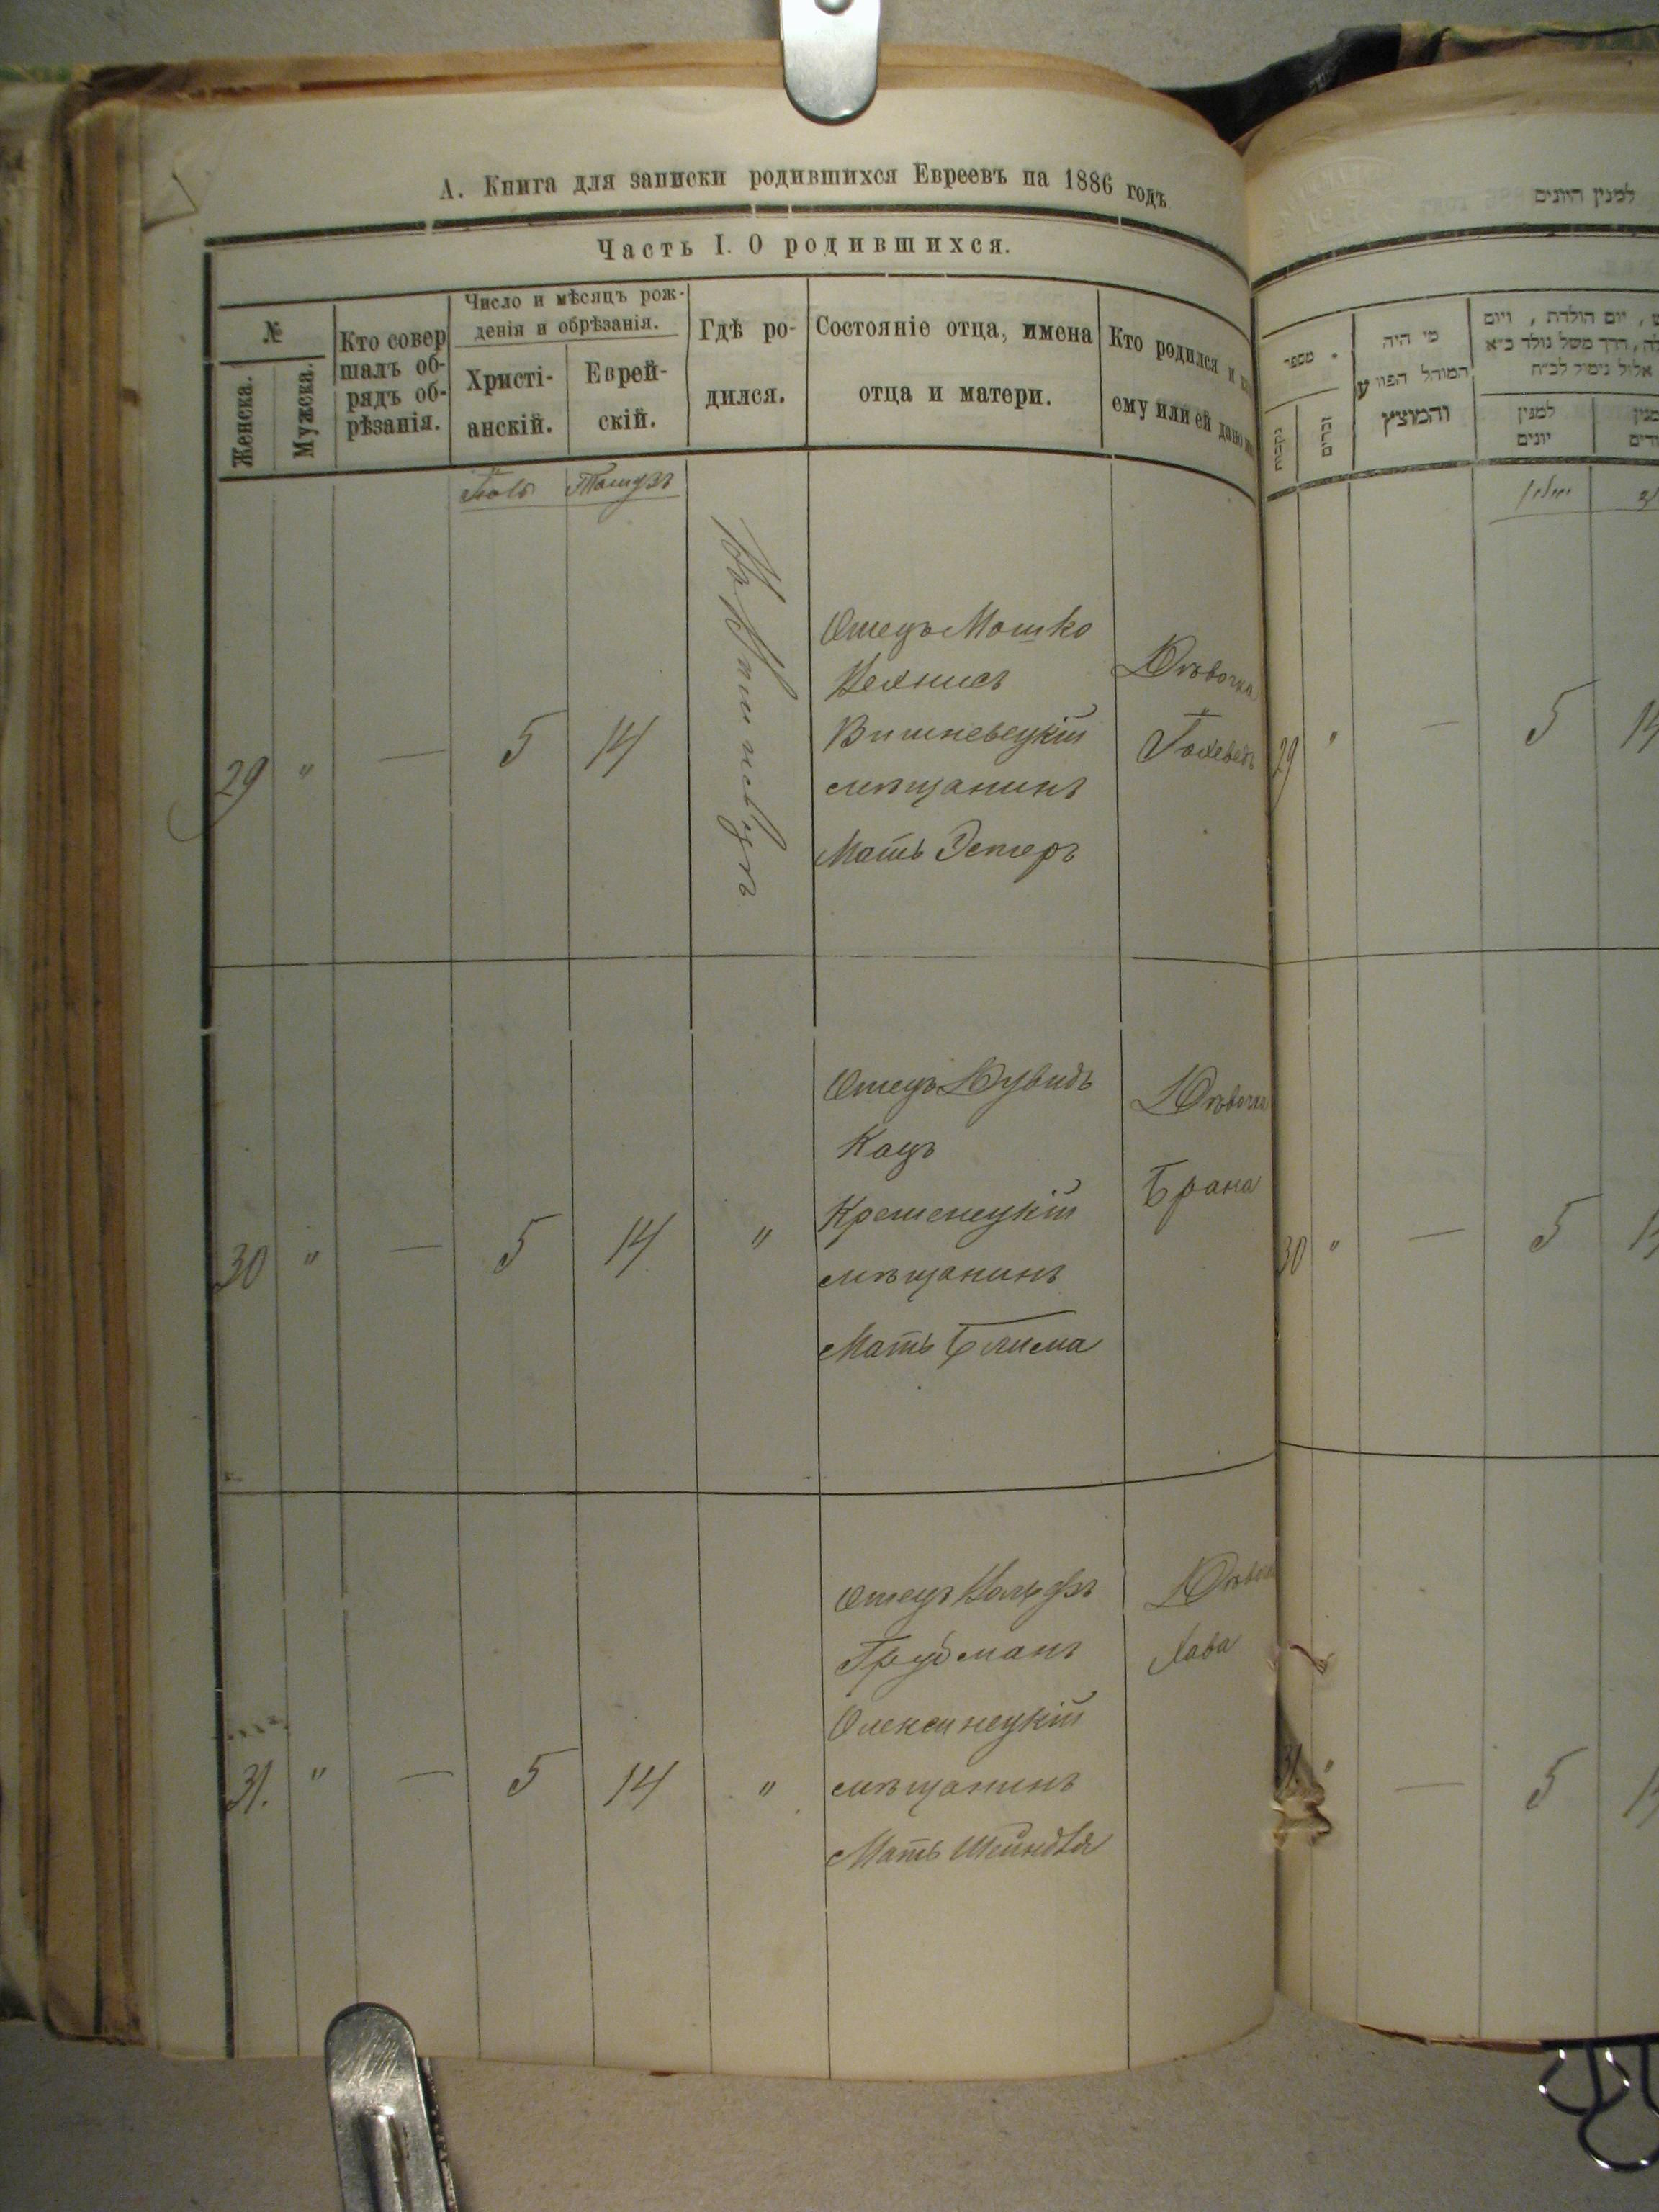 А. Книга для записки родившихся Евреевъ на 1886 годъ
Часть I. О родившихся.
№
Женска.
Мужска.
Кто совер
шалъ об-
рядъ об-
рѣзанія.
Число и мѣсяцъ рож-
денія и обрѣзанія.
Христі-
анскій.
Еврей-
скій.
Гдѣ ро-
дился.
Состояніе отца, имена
отца и матери.
Кто родился и
ему или ей дано
Іюль
Тамузъ
29 " — 5 14
Въ Вишневцѣ
Отецъ Мошко
Вишневецкій
мѣщанинъ
Мать Эстеръ
Дѣвочка
30 " — 5 14 "
Отецъ Дувидъ
Кацъ
Кременецкій
мѣщанинъ
Мать Блима
Дѣвочка
Брана
31. " — 5 14 "
Отецъ Вольфъ
Грубманъ
Олексинецкій
мѣщанинъ
Мать Шейндля
Дѣвочка
Хава
למנין היונים
מספר
נקבות
זכרים
מי היה
המוהל הפורע
והמוצץ
יום הולדת , ויום
דרך משל נולד כ״א
אלול נימול לכ״ח
למנין
יונים
יוליו
29 " — 5 14
30 " — 5
31. " — 5